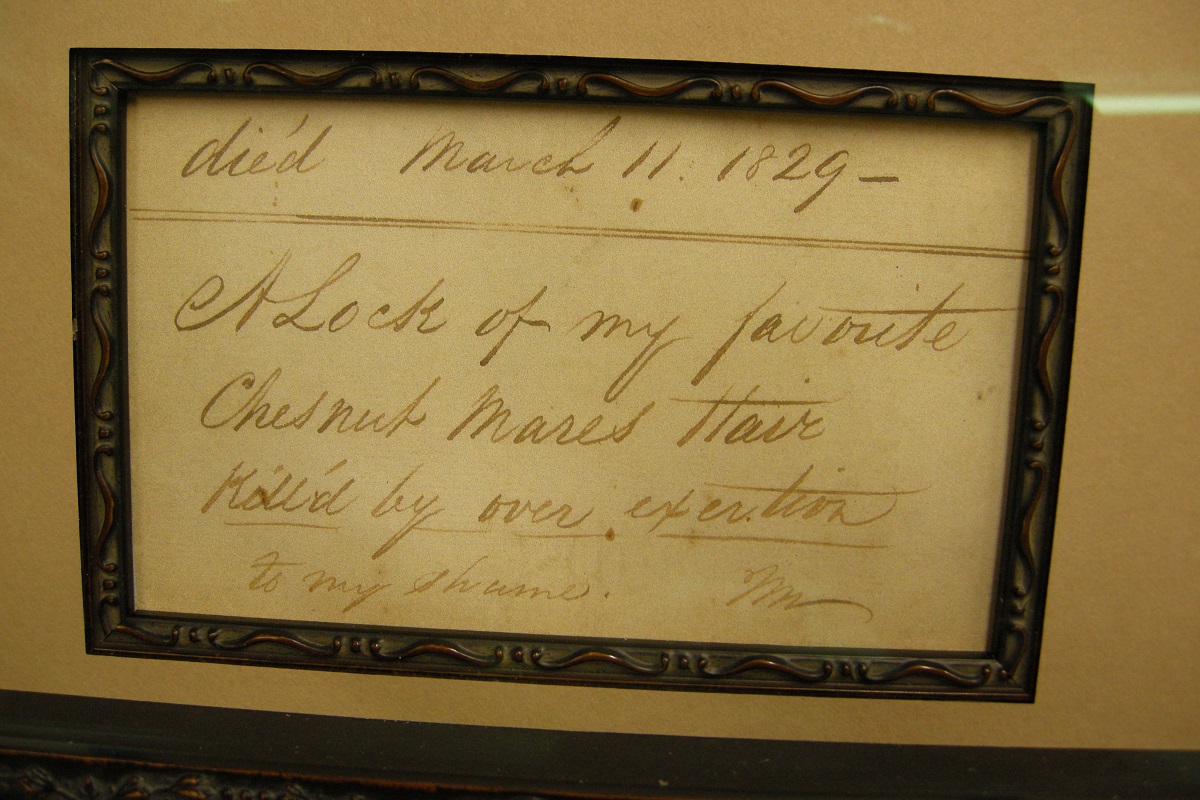 died March 11. 1829 —
A Lock of my favorite
Chesnut Mares Hair
Kill'd by over exertion
to my shame.